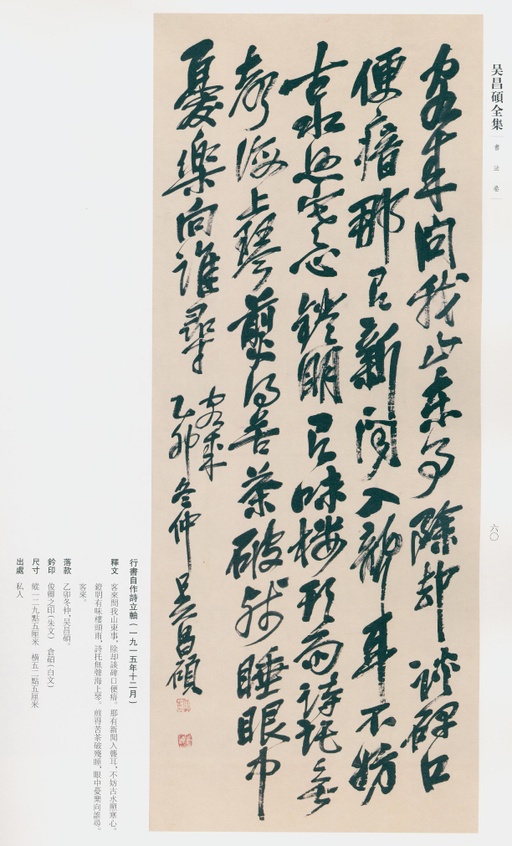 吴昌碩全集
書法卷
六〇
客來問我山東事除却談碑口
便瘖那有新聞入聾耳不妨
古水照寒心鐙明有味樓頭雨詩托無
聲海上琴煎得苦茶破殘睡眼中
憂樂向誰尋
客來
乙卯冬仲吳昌碩
行書自作詩立軸(一九一五年十二月)
釋文 客來問我山東事,除却談碑口便瘖。那有新聞入聾耳,不妨古水照寒心。
鐙明有味樓頭雨,詩托無聲海上琴。煎得苦茶破殘睡,眼中憂樂向誰尋。
客來。
落款 乙卯冬仲,吳昌碩。
鈐印 俊卿之印(朱文) 倉碩(白文)
尺寸 縱一二九點五厘米 橫五二點五厘米
出處 私人